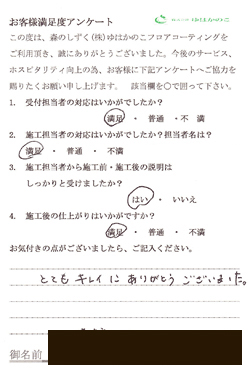 お客様満足度アンケート
この度は、森のしずく(株)ゆはかのこフロアコーティングを
ご利用頂き、誠にありがとうございました。今後のサービス、
ホスピタリティ向上の為、お客様に下記アンケートへご協力を
賜りたくお願い申し上げます。 該当欄を○で囲って下さい。
1. 受付担当者の対応はいかがでしたか?
満足 ・ 普通 ・不 満
2. 施工担当者の対応はいかがでしたか?担当者名は?
満足 ・ 普通 ・ 不満
3. 施工担当者から施工前・施工後の説明は
しっかりと受けましたか?
はい ・ いいえ
4. 施工後の仕上がりはいかがですか?
満足 ・ 普通 ・ 不満
お気付きの点がございましたら、ご記入ください。
とても キレイに ありがとう ございました。
御名前